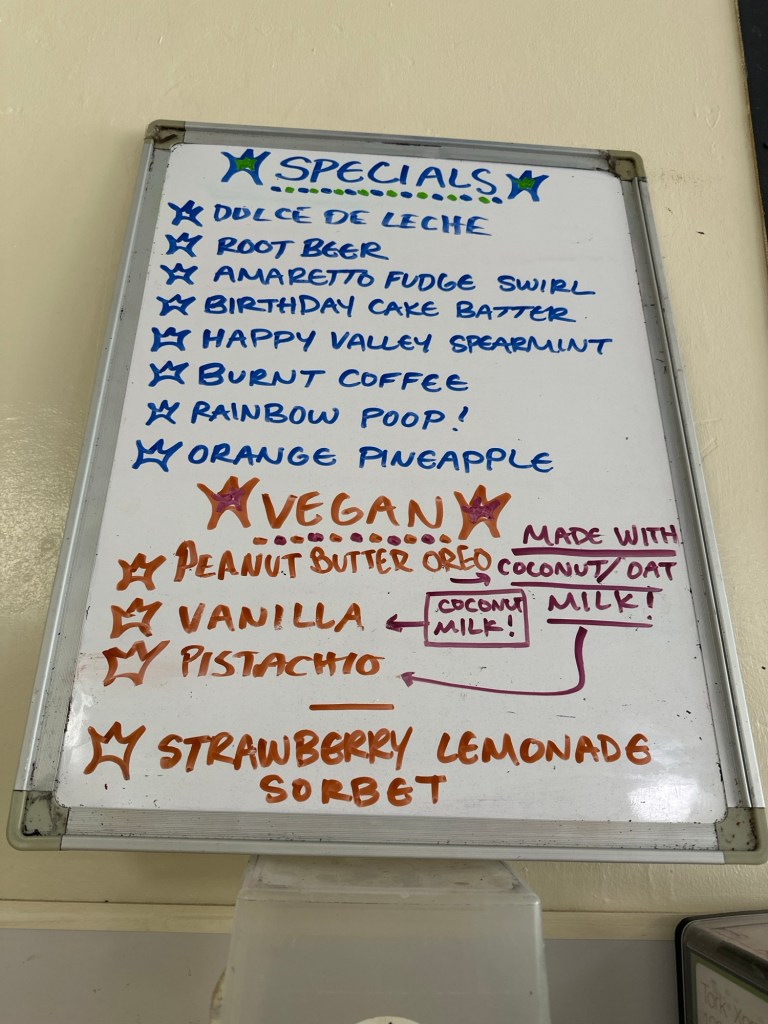 SPECIALS
DULCE DE LECHE
ROOT BEER
AMARETTO FUDGE SWIRL
BIRTHDAY CAKE BATTER
HAPPY VALLEY SPEARMINT
BURNT COFFEE
RAINBOW POOP!
ORANGE PINEAPPLE
VEGAN
PEANUT BUTTER OREO
MADE WITH
COCONUT/OAT
MILK!
VANILLA
COCONUT
MILK!
PISTACHIO
STRAWBERRY LEMONADE
SORBET
Tork